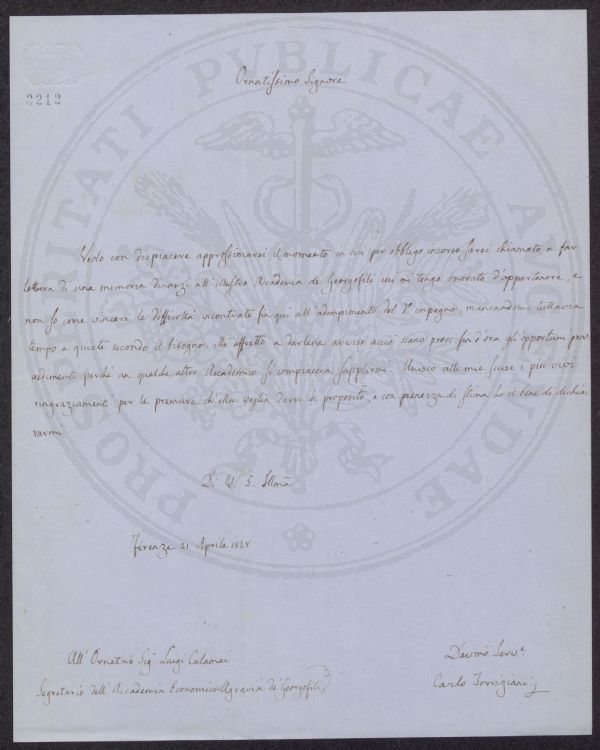 2212
Ornatissimo Signore
Vedo con dispiacere approssimarsi il momento in cui per obbligo incorso sarei chiamato a far
lettura di una memoria dinanzi all'illustre Accademia de Georgofili cui mi tengo onorato d'appartenere, e
non so come vincere le difficoltà incontrate fin qui all'adempimento del do impegno, mancandomi tuttavia
tempo e quiete secondo il bisogno. Mi affretto a darlene avviso acciò siano presi fin d'ora gli opportuni prov
vedimenti perchè un qualche altro Accademico si compiaccia supplirvi. Unisco alle mie scuse i più vivi
ringraziamenti per le premure ch'ella voglia darsi in proposito, e con pienezza di stima ho il bene di dichia
rarmi
Di V. S. Illma
Firenze 21 Aprile 1848
All' Ornatmo Sigr Luigi Calamai
Segretario dell'Accademia Economico-Agraria de'Georgofili
Devmo Serve
Carlo Torrigiani
PROSPERITATI PUBLICAE AUGENDAE